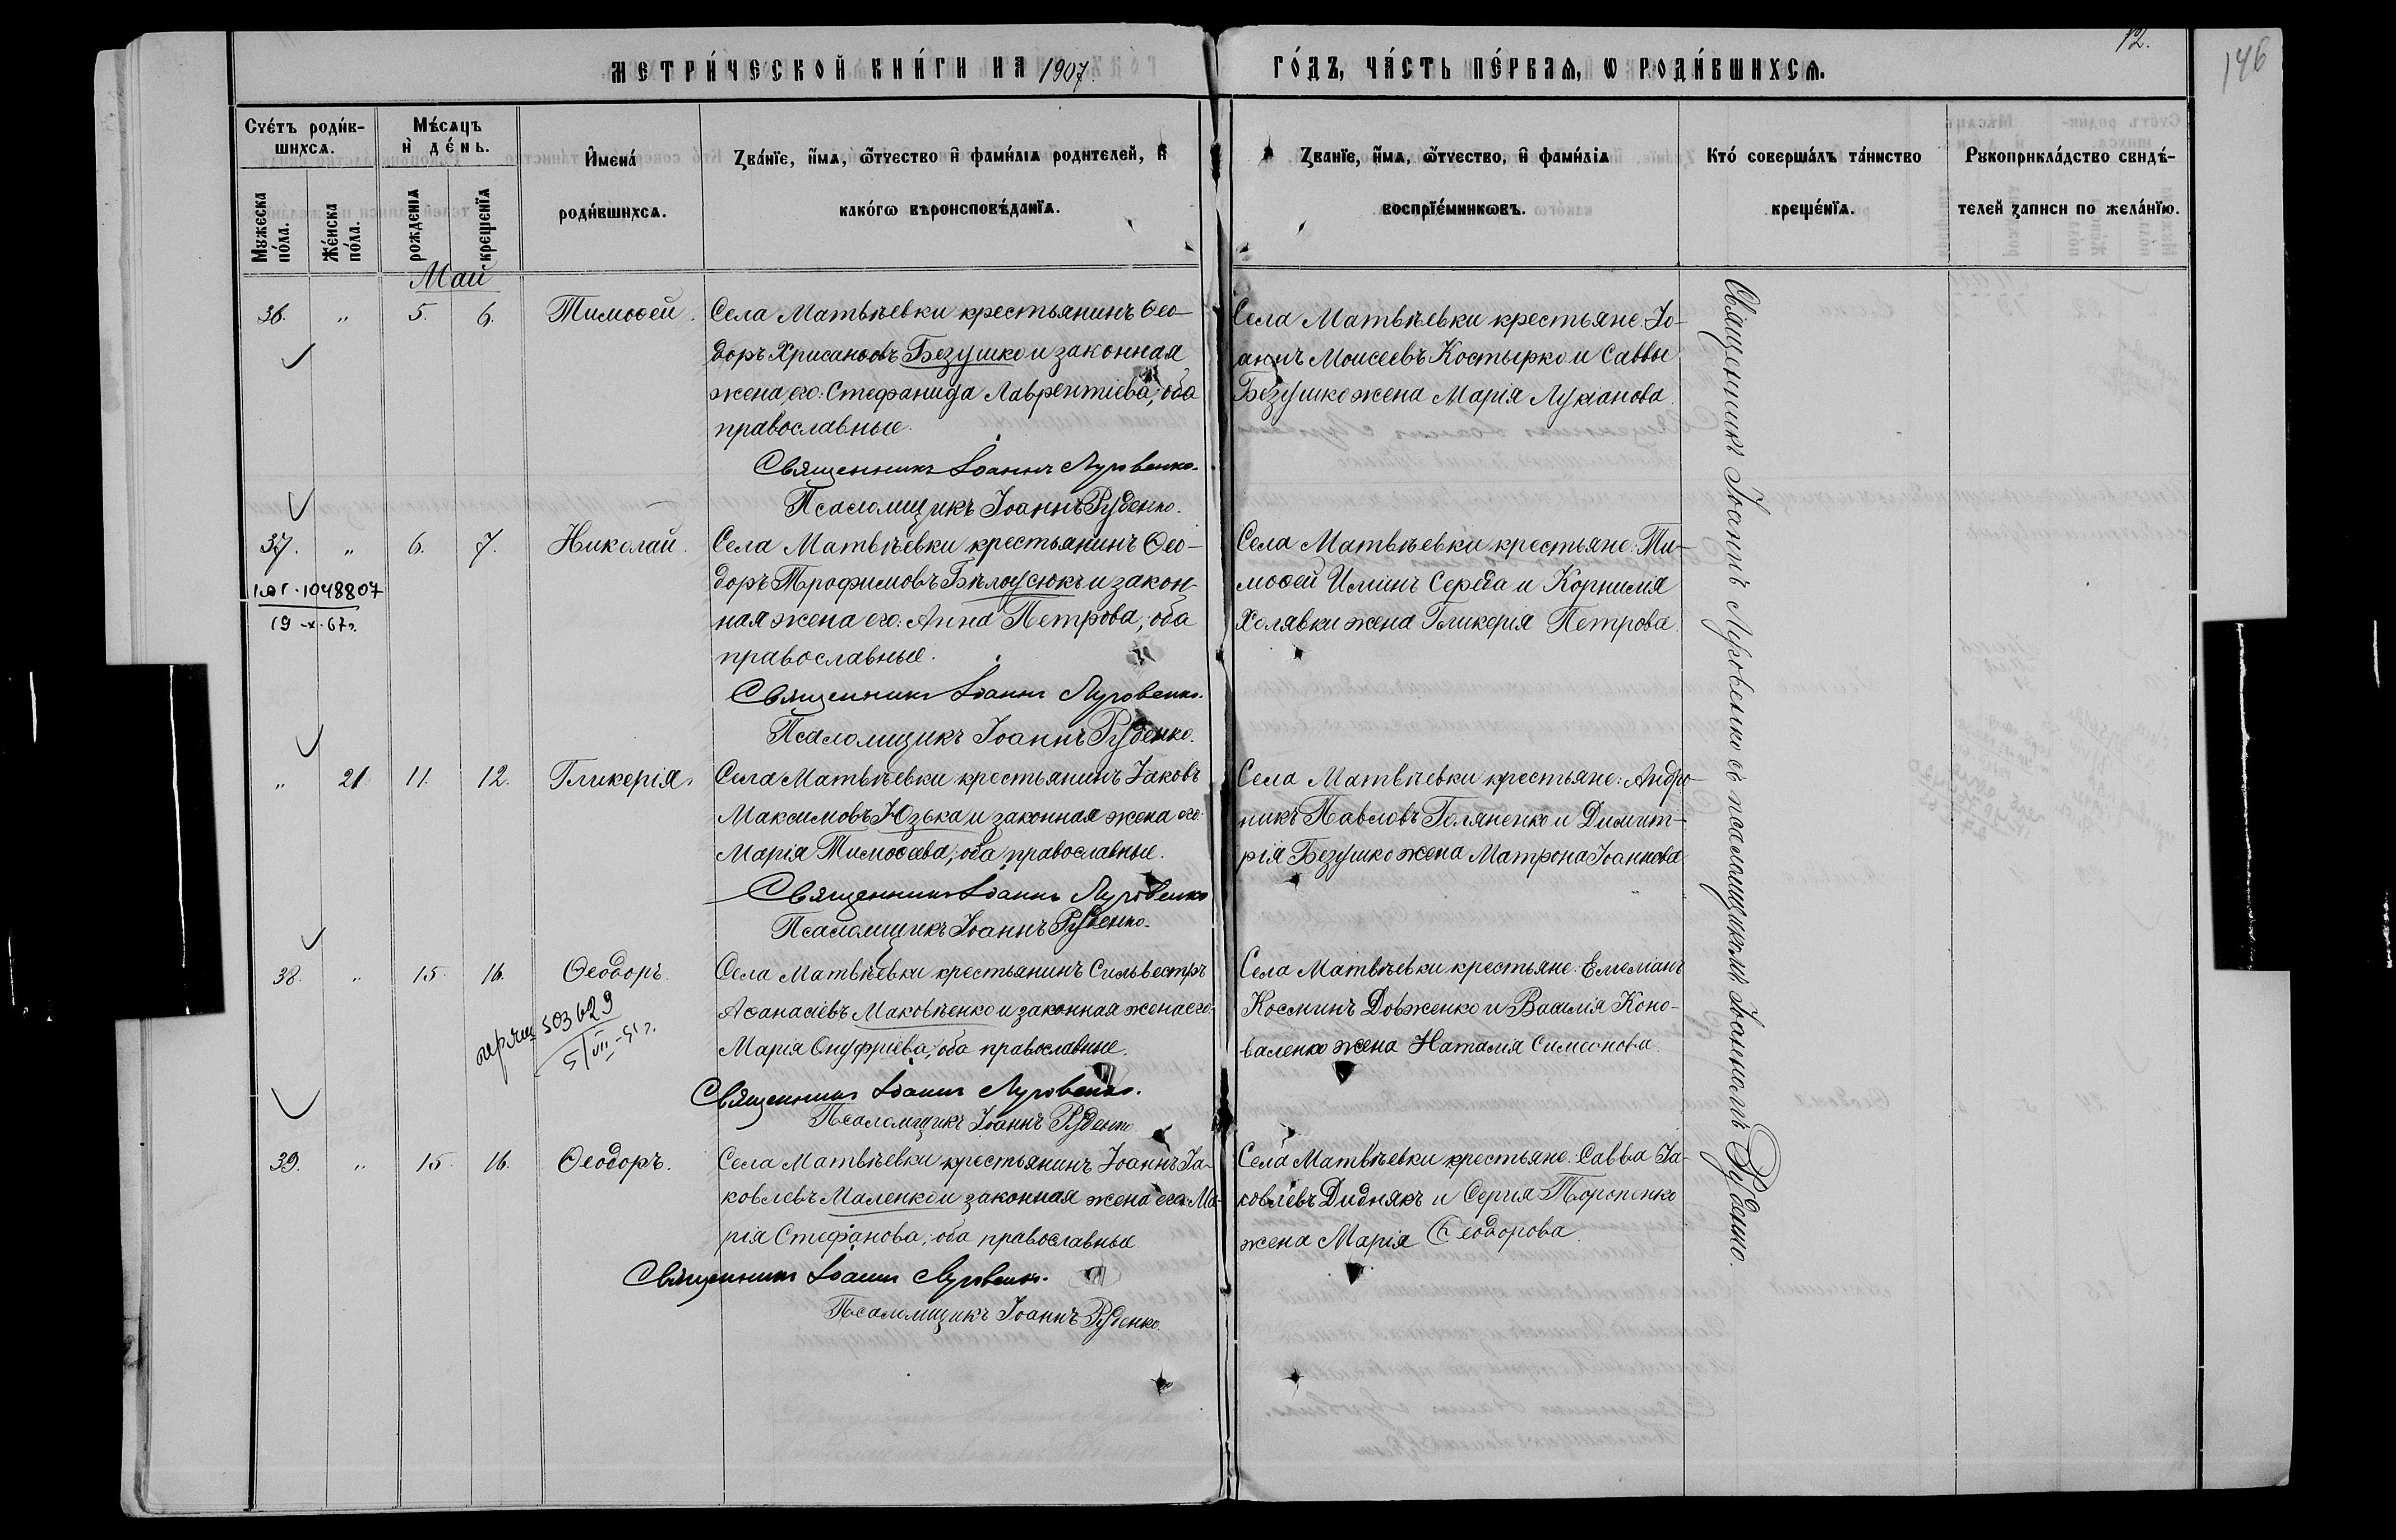 12.
146
МЕТРИ́ЧЕСКОЙ КНИ́ГИ НА 1907.
ГО́ДЪ, ЧА́СТЬ ПЕ́РВАѦ, Ѡ РОДИ́ВШИХСѦ.
Сче́тъ роди́в-
шихсѧ.
Мꙋжеска по́ла.
Же́нска по́ла.
Мѣ́сѧцъ
и҆ де́нь.
рожденїѧ
крещенїѧ
И҆мена́
роди́вшихсѧ.
Зва́нїе, и҆́мѧ, ѻ҆́тчество и҆ фами́лїѧ родителей, и҆
како́гѡ вѣроисповѣ́данїѧ.
Званїе, и҆́мѧ, ѻ҆́тчество, и҆ фами́лїѧ
воспрїе́мникѡвъ.
Кто́ соверша́лъ та́инство
креще́нїѧ.
Рꙋкоприкла́дство свидѣ́-
телей записи по жела́нїю.
Май
36. " 5. 6. Тимоѳей.
Села Матвѣевки крестьянинъ Ѳео-
доръ Хрисанѳовъ Безушко и законная
жена его: Стефанида Лаврентіева, оба
православные.
Священникъ Іоаннъ Луговенко.
Псаломщикъ Іоаннъ Руденко.
Села Матвѣевки крестьяне: Іо-
аннъ Моисеевъ Костырко и Саввы
Безушко жена Марія Лукіанова.
37. " 6. 7. Николай.
1048807
19-x-67г.
Села Матвѣевки крестьянинъ Ѳео-
доръ Трофимовъ Бѣлоусюкъ и закон-
ная жена его: Анна Петрова, оба
православные.
Священникъ Іоаннъ Луговенко.
Псаломщикъ Іоаннъ Руденко.
Села Матвѣевки крестьяне: Ти-
моѳей Иліинъ Середа и Корнилія
Холявки жена Гликерія Петрова.
" 21 11. 12. Гликерія.
Села Матвѣевки крестьянинъ Іаковъ
Максимовъ Юзька и законная жена его:
Марія Тимоѳеева, оба православные.
Священникъ Іоаннъ Луговенко
Псаломщикъ Іоаннъ Руденко.
Села Матвѣевки крестьяне: Андро-
никъ Павловъ Голяненко и Димит-
рія Безушко жена Матрона Іоаннова
38. " 15. 16. Ѳеодоръ.
503629
5/VII-51г.
Села Матвѣевки крестьянинъ Сильвестръ
Аѳанасіевъ Маковѣенко и законная жена его:
Марія Онуфріева, оба православные.
Священникъ Іоаннъ Луговенко.
Псаломщикъ Іоаннъ Руденко
Села Матвѣевки крестьяне: Емеліанъ
Косминъ Довженко и Василія Коно-
валенко жена Наталія Симеонова.
39. " 15. 16. Ѳеодоръ.
Села Матвѣевки крестьянинъ Іоаннъ Іа-
ковлевъ Маленко и законная жена его: Ма-
рія Стефанова, оба православные
Священникъ Іоаннъ Луговенко.
Псаломщикъ Іоаннъ Руденко.
Села Матвѣевки крестьяне: Савва Іа-
ковлевъ Диднякъ и Сергія Торопенко
жена Марія Ѳеодорова.
Священникъ Іоаннъ Луговенко съ псаломщикомъ Іоанномъ Руденко.